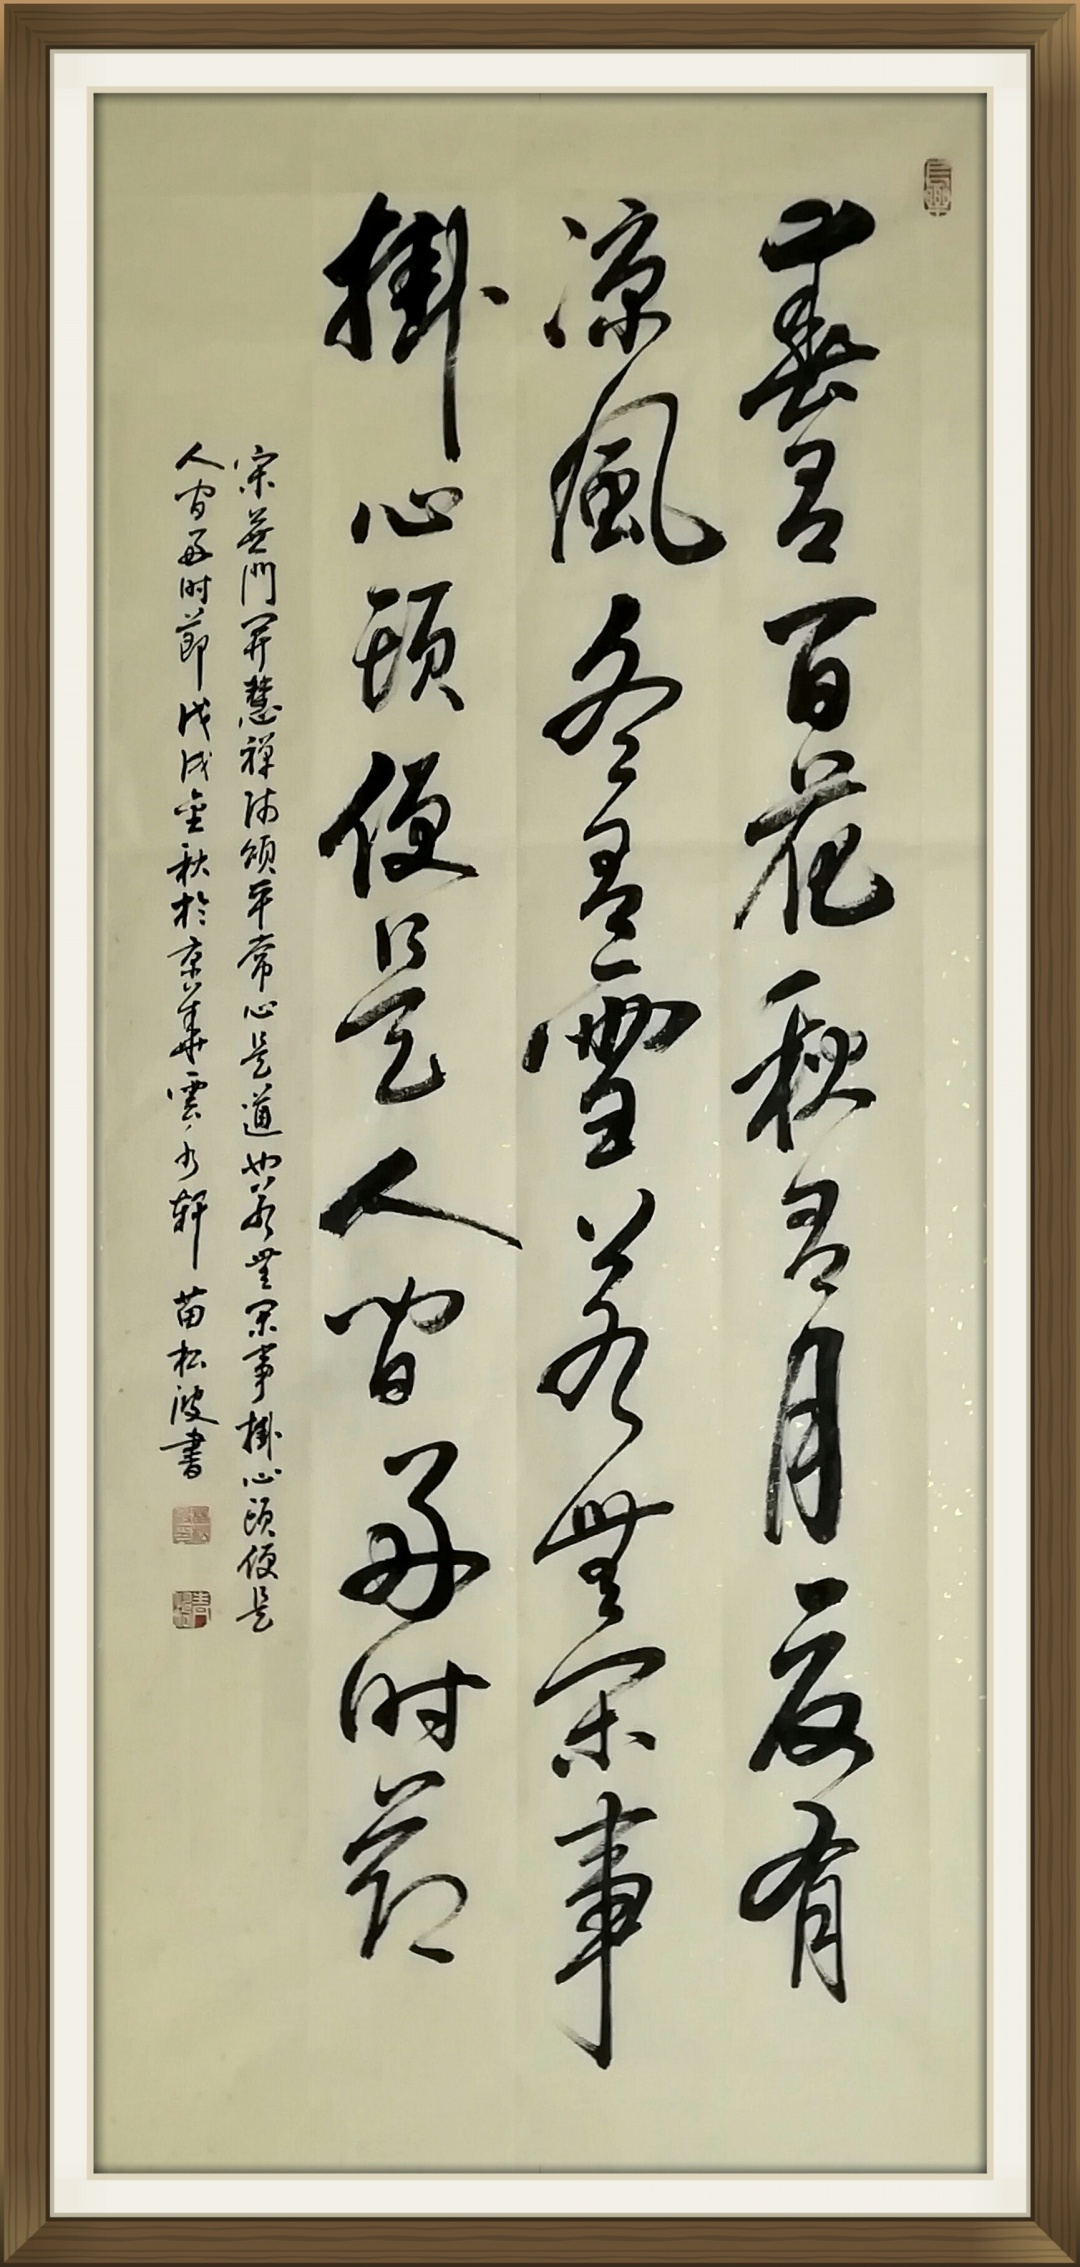 春有百花秋有月夏有
涼風冬有雪若無閑事
掛心頭便是人間好时節
宋無門開慧禅師頌平常心是道也若無閑事掛心頭便是
人間好时節戊戌金秋於京華雲水軒苗松波書